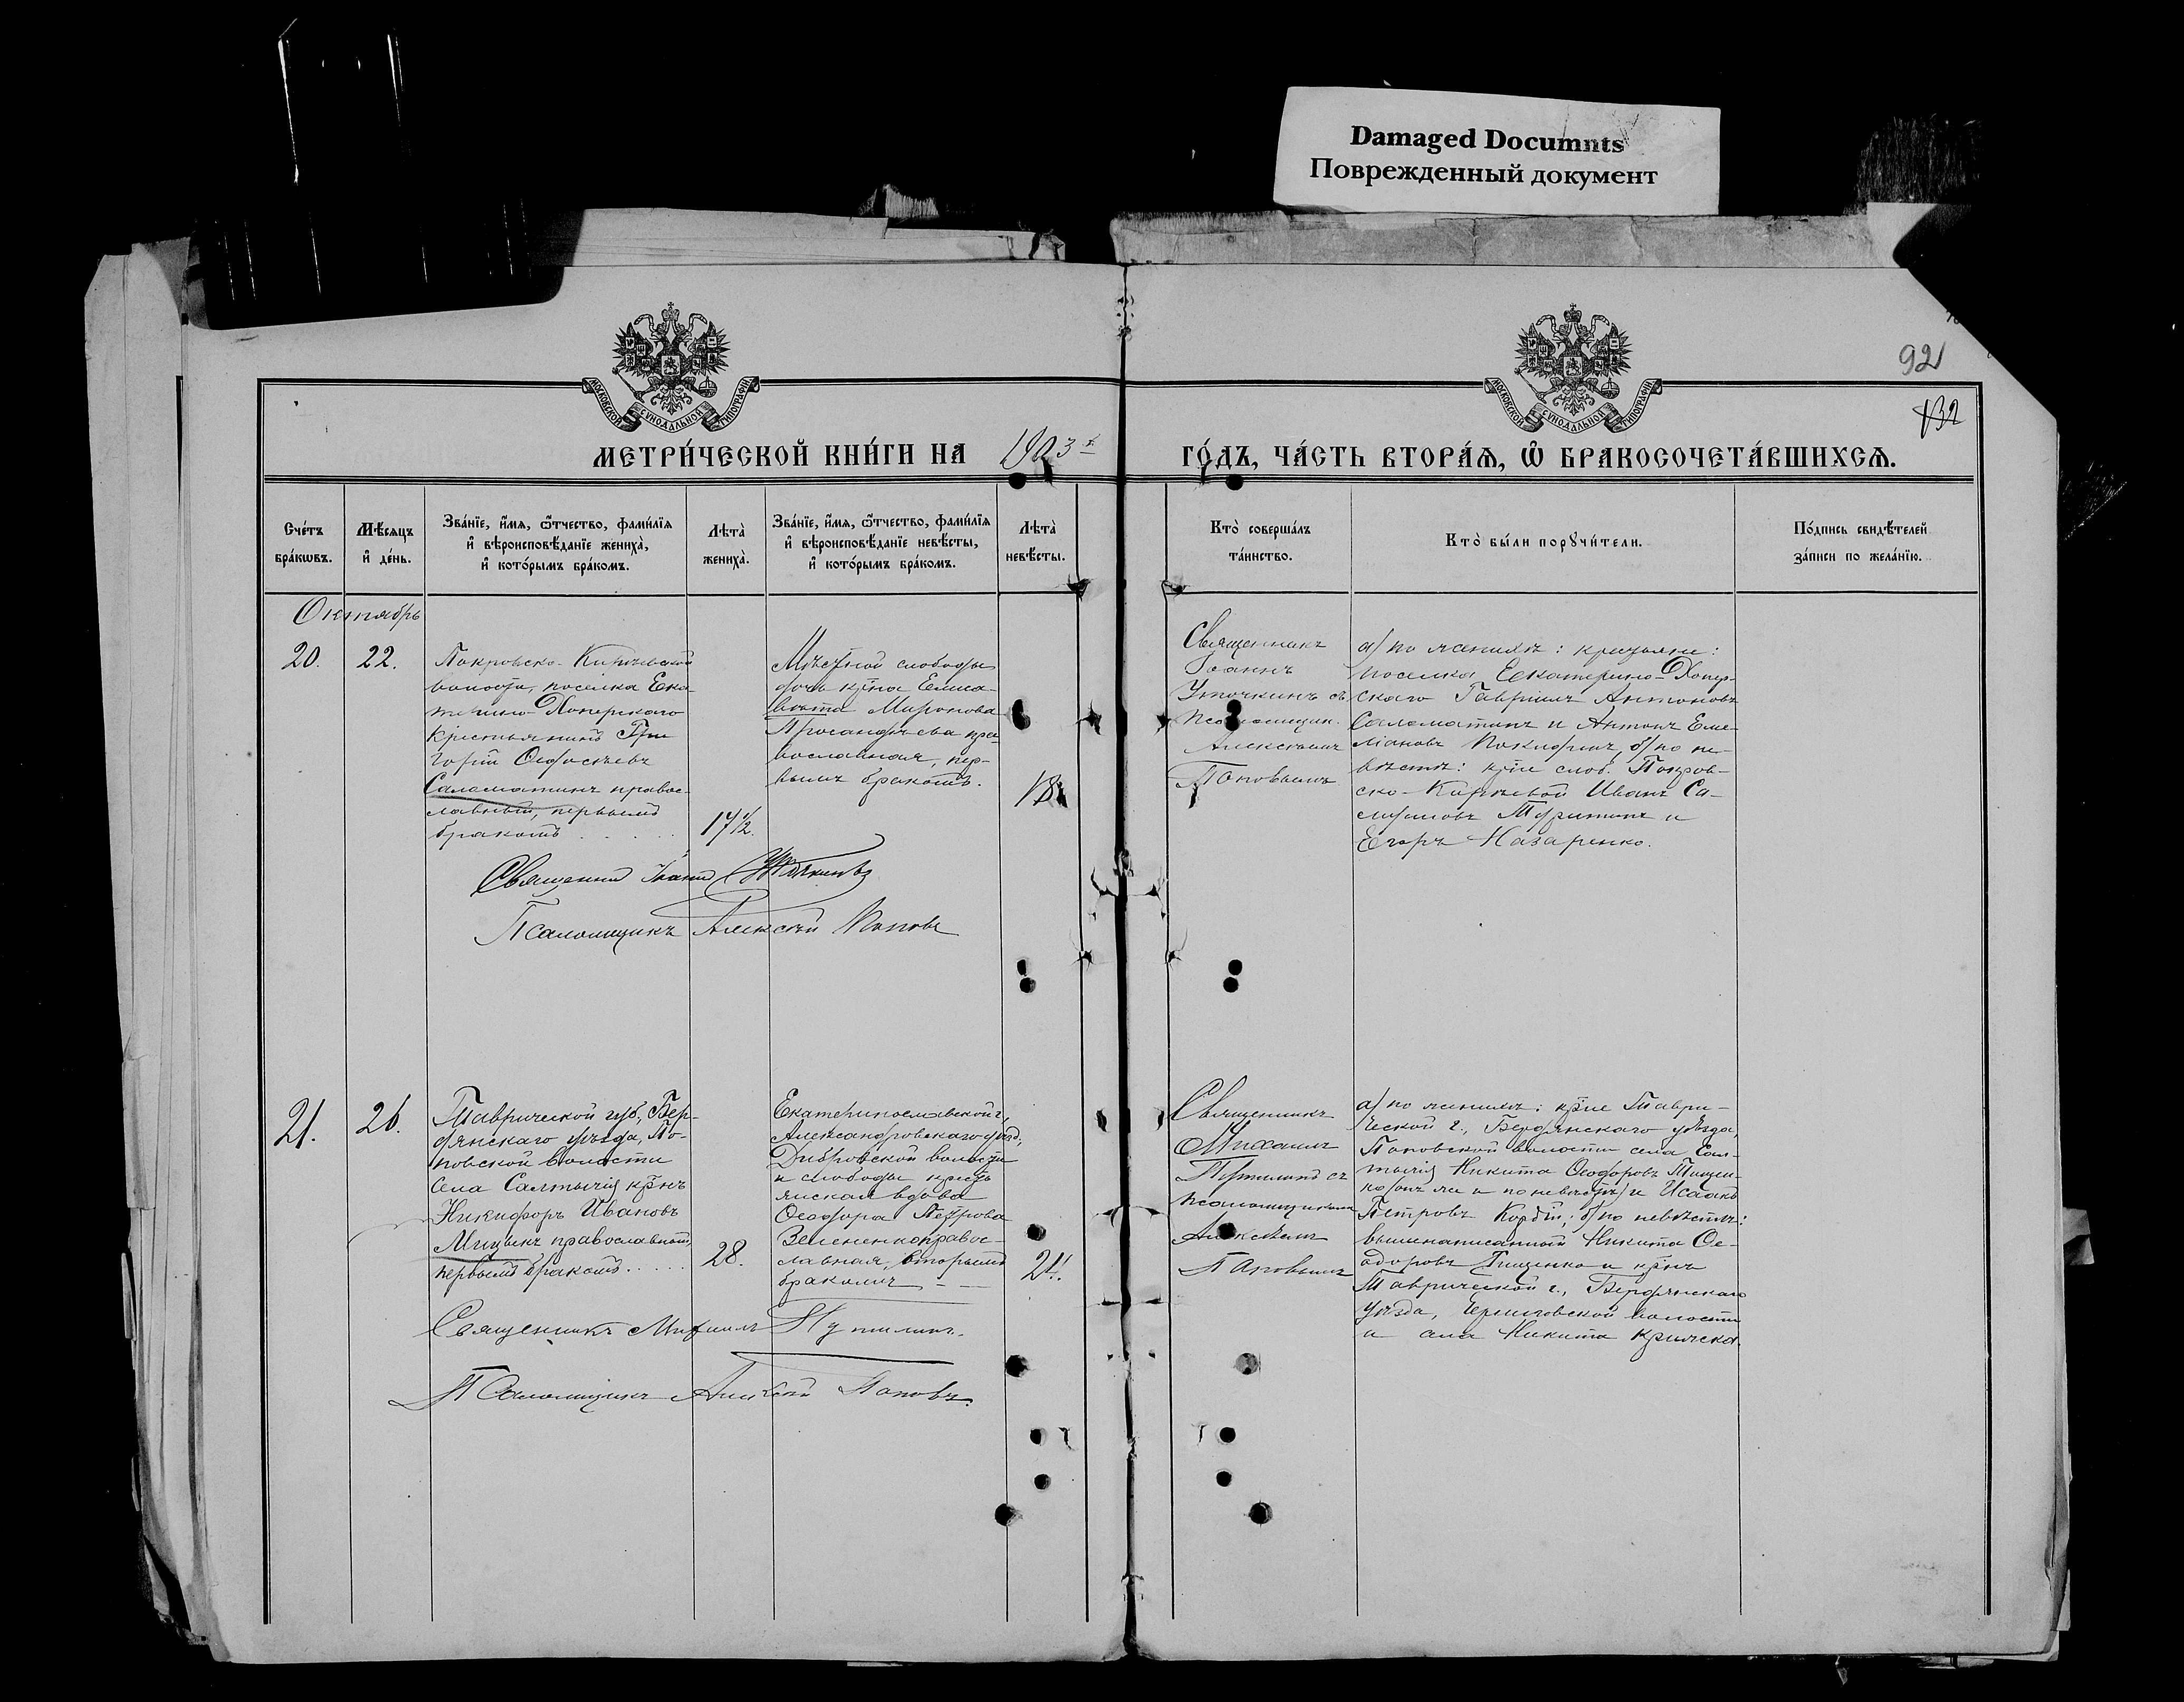 Damaged Documnts
Поврежденный документ
МОСКОВСКОЙ СУНОДАЛЬНОЙ ТИПОГРАФІИ
МОСКОВСКОЙ СУНОДАЛЬНОЙ ТИПОГРАФІИ
92
132
МЕТРИ́ЧЕСКОЙ КНИ́ГИ НА 1903 ГО́ДЪ, ЧА́СТЬ ВТОРА́Я, Ѡ БРАКОСОЧЕТА́ВШИХСЯ.
Сче́тъ
бра́кѡвъ.
Мѣ́сяцъ
и҆ де́нь.
Зва́нїе, и҆́мя, ѻ҆́тчество, фами́лїя
и҆ вѣроисповѣ́данїе жениха̀,
и҆ кото́рымъ бра́комъ.
Лѣта̀
жениха̀.
Зва́нїе, и҆́мя, ѻ҆́тчество, фами́лїя
и҆ вѣроисповѣ́данїе невѣ́сты,
и҆ кото́рымъ бра́комъ.
Лѣта̀
невѣ́сты.
Кто̀ соверша́лъ
та́инство.
Кто̀ бы́ли порꙋчи́тели.
По́дпись свидѣ́телей
за́писи по жела́нїю.
Октябрь
20.
22.
Покровско-Кирѣевской
волости, поселка Ека-
терино-Хоперскаго
крестьянинъ Гри
горій Ѳедосѣевъ
Саломатинъ правос-
лавный, первымъ
бракомъ
17½.
Мѣстной слободы
дочь кр̃на Елиса-
вета Миронова
пра-
вославная, пер-
вымъ бракомъ.
18
Священникъ
Іоаннъ
Уточкинъ съ
псаломщик.
Алексѣемъ
Поповымъ
а) по женихѣ: крестьяне:
поселка Екатерино-Хопер-
скаго Гавріилъ Антоновъ
Саломатинъ и Антонъ Еме-
ліановъ б) по не-
вѣстѣ: кр̃не слоб. Покров-
ско-Кирѣевой Иванъ Са-
мойловъ и
Егоръ Назаренко.
Священникъ Іоаннъ Уточкинъ
Псаломщикъ Алексѣй Поповъ
21.
26.
Таврической губ., Бер-
дянскаго уѣзда, По-
повской волости
села Салтычія кр̃нъ
Никифоръ Ивановъ
Мицыкъ православный,
первымъ бракомъ
28.
Екатеринославской г.,
Александровскаго уѣзд,
волости
и слободы кресть
янская вдова
Ѳеодора Петрова
Зелененко правос-
лавная, вторымъ
бракомъ
24.
Священникъ
Михаилъ
съ
псаломщикомъ
Алексѣемъ
Поповымъ
а) по женихѣ: кр̃не Таври-
ческой г., Бердянскаго уѣзда,
Поповской волости села Сал-
тычія Никита Ѳеодоровъ Тищен-
ко (онъ же и по невѣстѣ) и Исаакъ
Петровъ б) по невѣстѣ:
вышенаписанный Никита Ѳе-
одоровъ Тищенко и кр̃нъ
Таврической г., Бердянскаго
уѣзда, Черниговской волости
и села Никита
Священникъ Михаилъ
Псаломщикъ Алексѣй Поповъ.